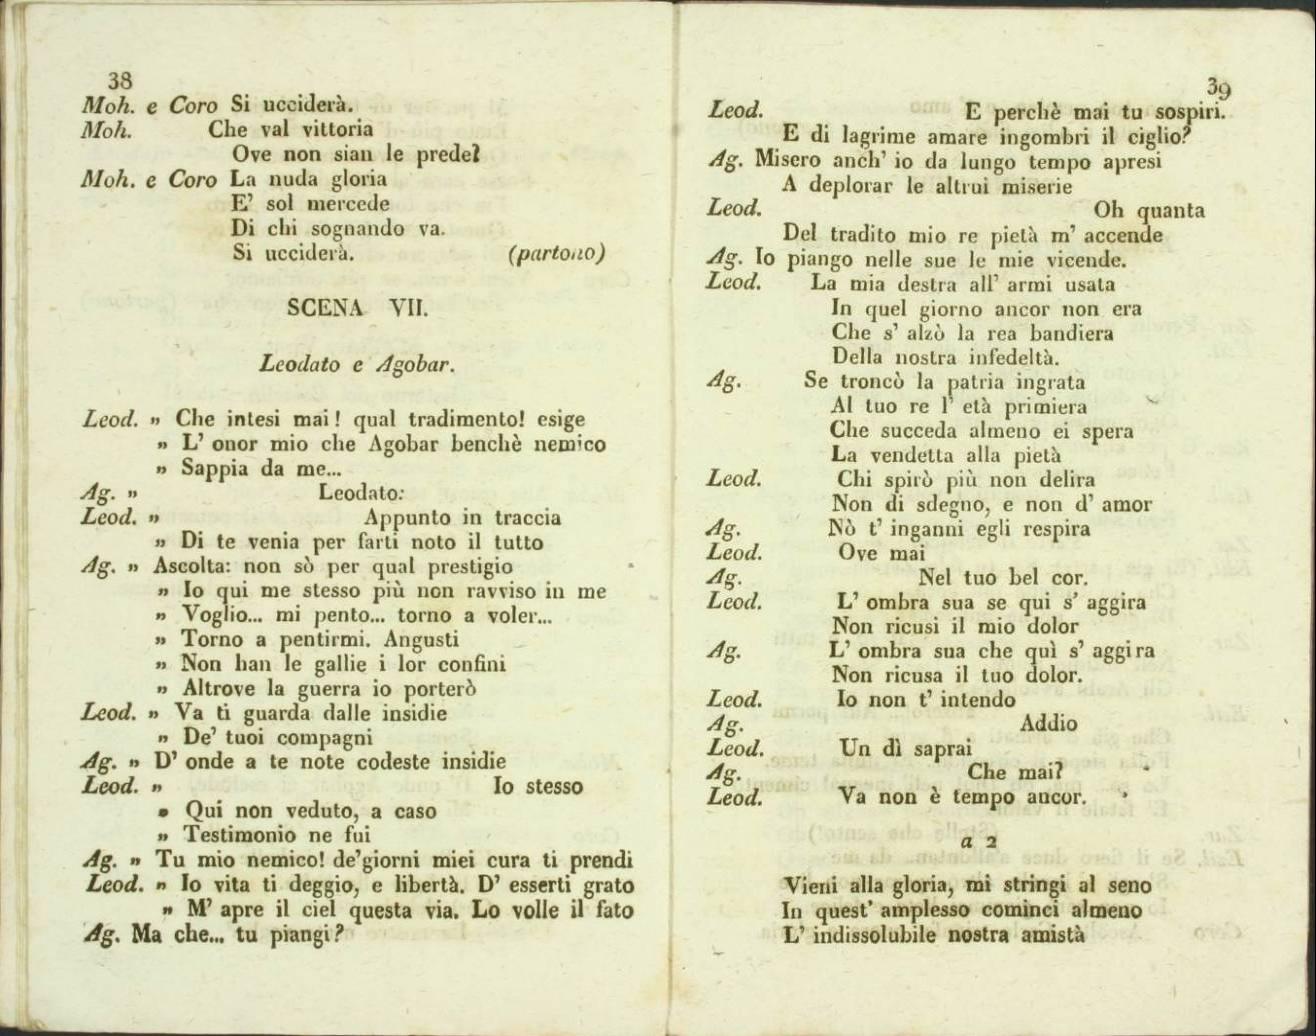 38
Moh. e Coro Si ucciderà.
Moh. Che val vittoria
Ove non sian le prede?
Moh. e Coro La nuda gloria
E' sol mercede
Di chi sognando va.
Si ucciderà. (partono)
SCENA VII.
Leodato e Agobar.
Leod. „ Che intesi mai! qual tradimento! esige
„ L' onor mio che Agobar benchè nemico
„ Sappia da me...
Ag. „ Leodato:
Leod. „ Appunto in traccia
„ Di te venia per farti noto il tutto
Ag. „ Ascolta: non sò per qual prestigio
„ Io qui me stesso più non ravviso in me
„ Voglio... mi pento... torno a voler...
„ Torno a pentirmi. Angusti
„ Non han le gallie i lor confini
„ Altrove la guerra io porterò
Leod. „ Va ti guarda dalle insidie
„ De' tuoi compagni
Ag. „ D' onde a te note codeste insidie
Leod. „ Io stesso
„ Qui non veduto, a caso
„ Testimonio ne fui
Ag. „ Tu mio nemico! de'giorni miei cura ti prendi
Leod. „ Io vita ti deggio, e libertà. D' esserti grato
„ M' apre il ciel questa via. Lo volle il fato
Ag. Ma che... tu piangi?
39
Leod. E perchè mai tu sospiri.
E di lagrime amare ingombri il ciglio?
Ag. Misero anch' io da lungo tempo apresi
A deplorar le altrui miserie
Leod. Oh quanta
Del tradito mio re pietà m' accende
Ag. Io piango nelle sue le mie vicende.
Leod. La mia destra all' armi usata
In quel giorno ancor non era
Che s' alzò la rea bandiera
Della nostra infedeltà.
Ag. Se troncò la patria ingrata
Al tuo re l' età primiera
Che succeda almeno ei spera
La vendetta alla pietà
Leod. Chi spirò più non delira
Non di sdegno, e non d' amor
Ag. Nò t' inganni egli respira
Leod. Ove mai
Ag. Nel tuo bel cor.
Leod. L' ombra sua se qui s' aggira
Non ricusi il mio dolor
Ag. L' ombra sua che quì s' aggira
Non ricusa il tuo dolor.
Leod. Io non t' intendo
Ag. Addio
Leod. Un dì saprai
Ag. Che mai?
Leod. Va non è tempo ancor.
a 2
Vieni alla gloria, mi stringi al seno
In quest' amplesso cominci almeno
L' indissolubile nostra amistà